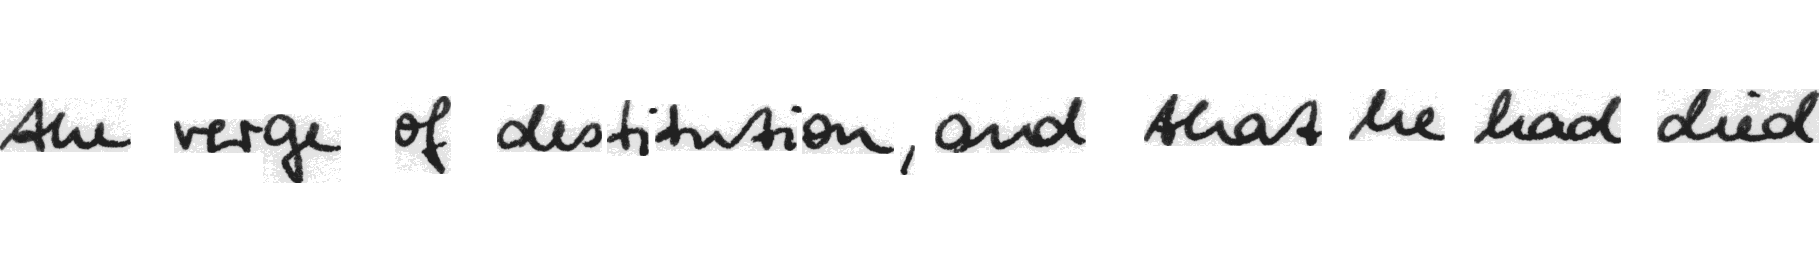 the verge of destitution, and that he had died